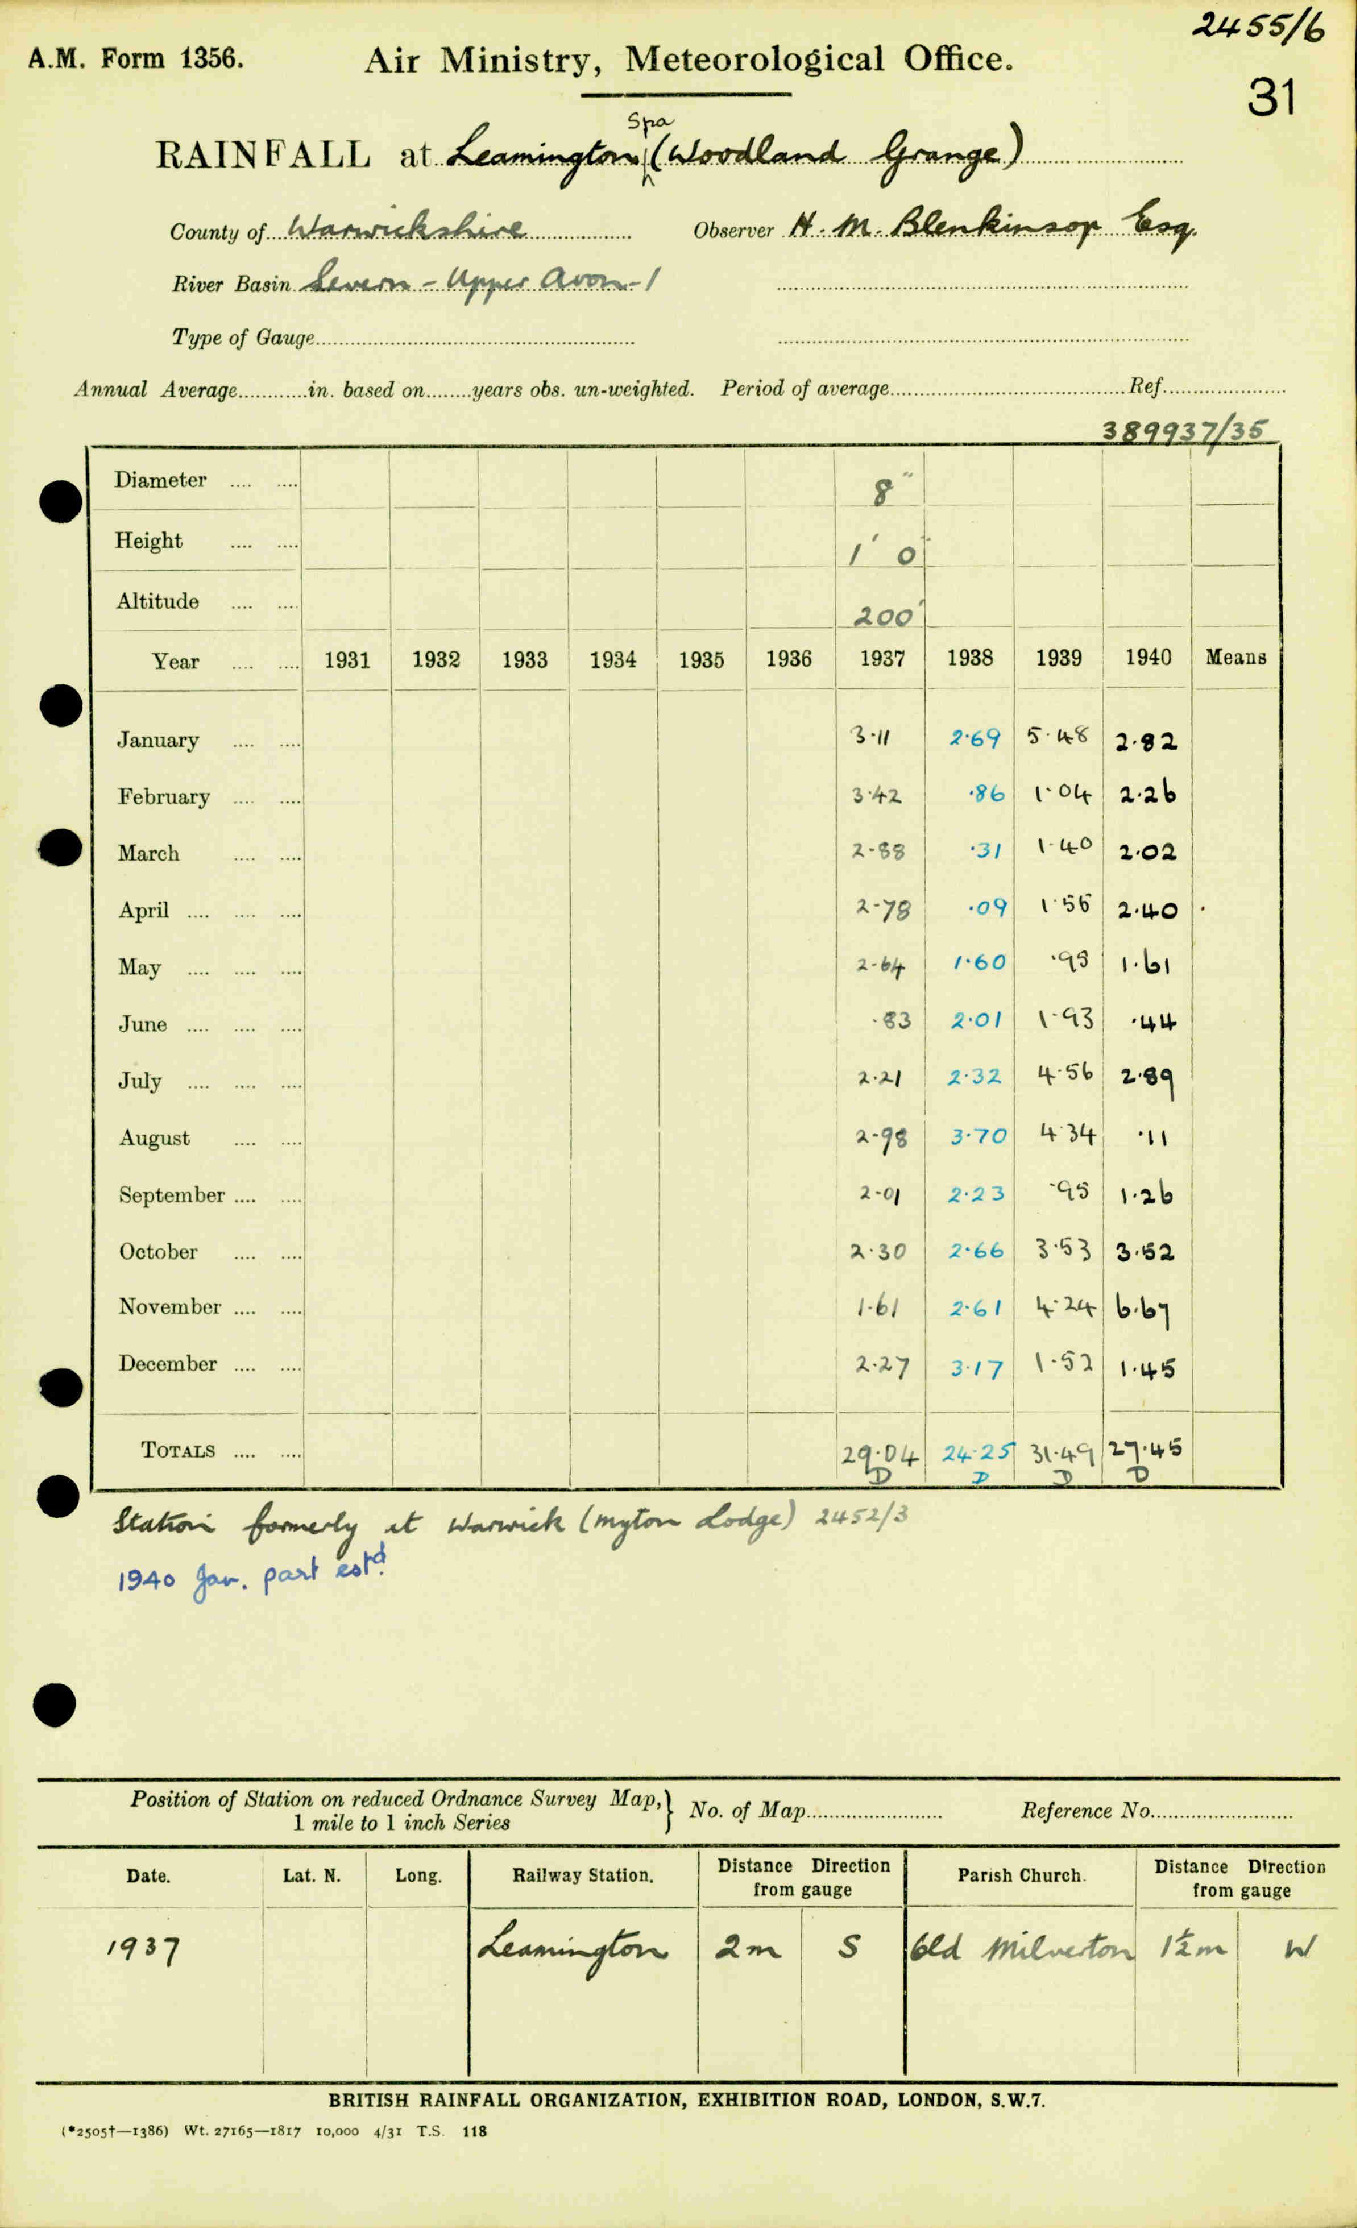 2455/6
A.M. Form 1356. Air Ministry, Meteorological Office.
31
Spa
RAINFALL at Leamington (Woodland Grange)
County of Warwickshire Observer H. M. Blenkinsop Esq.
River Basin Severn - Upper Avon - 1
Type of Gauge
Annual Average in. based on years obs. un-weighted. Period of average Ref.
389937/35
Diameter 8"
Height 1' 0"
Altitude 200'
Year 1931 1932 1933 1934 1935 1936 1937 1938 1939 1940 Means
January 3·11 2·69 5·48 2·82
February 3·42 ·86 1·04 2·26
March 2·88 ·31 1·40 2·02
April 2·78 ·09 1·55 2·40
May 2·64 1·60 ·95 1·61
June ·83 2·01 1·93 ·44
July 2·21 2·32 4·56 2·89
August 2·98 3·70 4·34 ·11
September 2·01 2·23 ·95 1·26
October 2·30 2·66 3·53 3·52
November 1·61 2·61 4·24 6·67
December 2·27 3·17 1·52 1·45
TOTALS 29·04 24·25 31·49 27·45
D D D D
Station formerly at Warwick (Myton Lodge) 2452/3
1940 Jan. part estd.
Position of Station on reduced Ordnance Survey Map, } No. of Map Reference No.
1 mile to 1 inch Series
Date. Lat. N. Long. Railway Station. Distance Direction from gauge Parish Church. Distance Direction from gauge
1937 Leamington 2m S Old Milverton 1½m W
BRITISH RAINFALL ORGANIZATION, EXHIBITION ROAD, LONDON, S.W.7.
(*2505†—1386) Wt. 27165—1817 10,000 4/31 T.S. 118